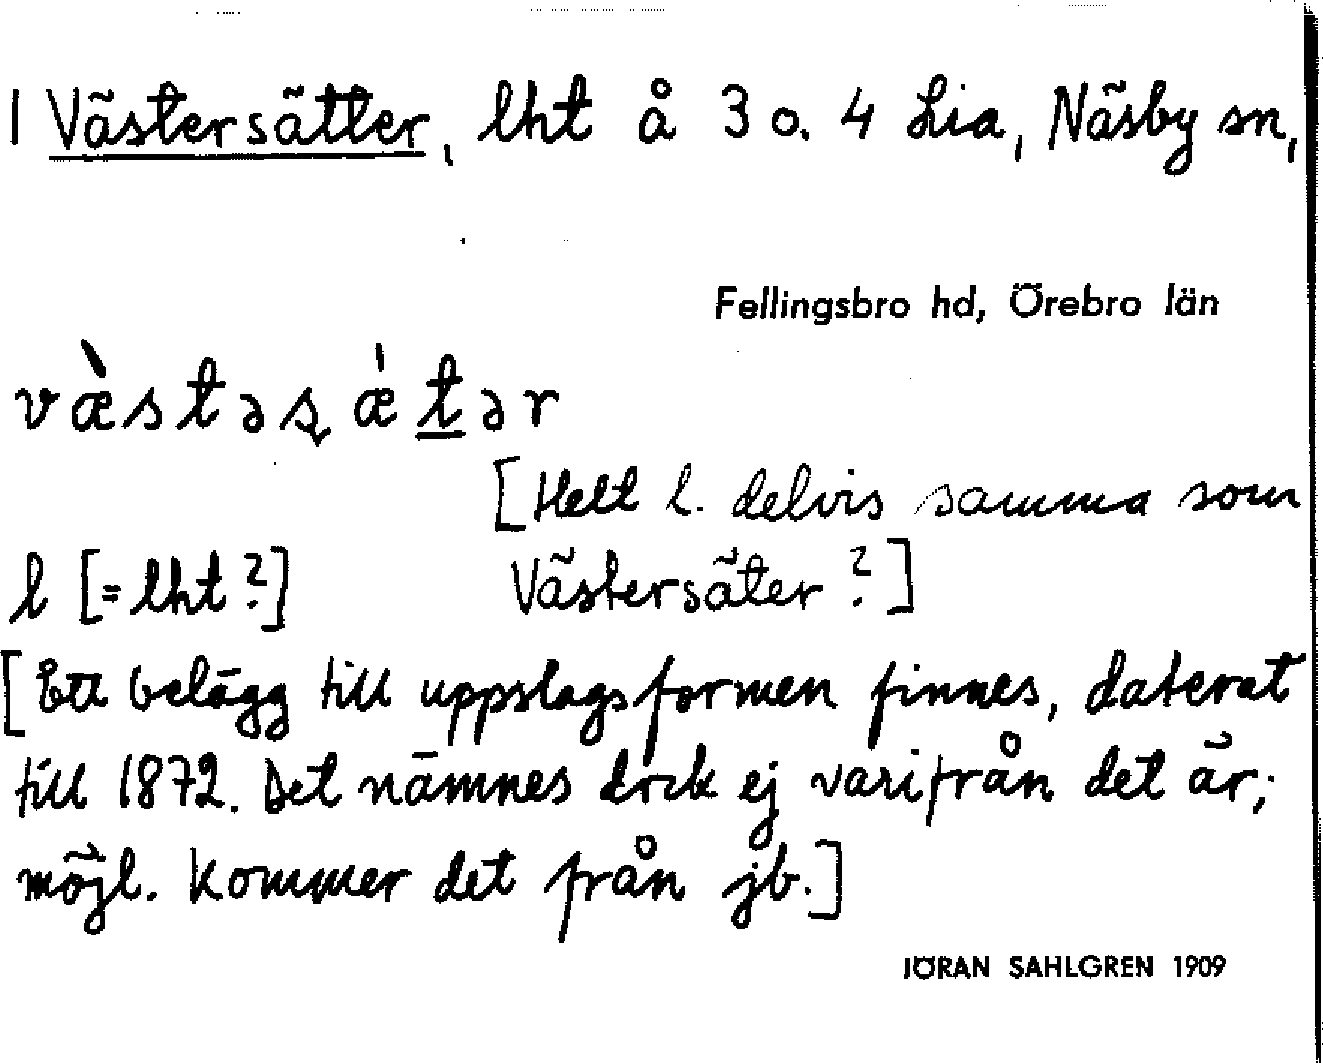 1 Västersätter, lht å 3 o. 4 Lia, Näsby sn,
Fellingsbro hd, Örebro län
væ̀stəʂǽt̲ər
[Helt l. delvis samma som
l [= lht?] Västersäter?]
[Ett belägg till uppslagsformen finnes, daterat
till 1872. Det nämnes dock ej varifrån det är;
möjl. kommer det från jb.]
JÖRAN SAHLGREN 1909